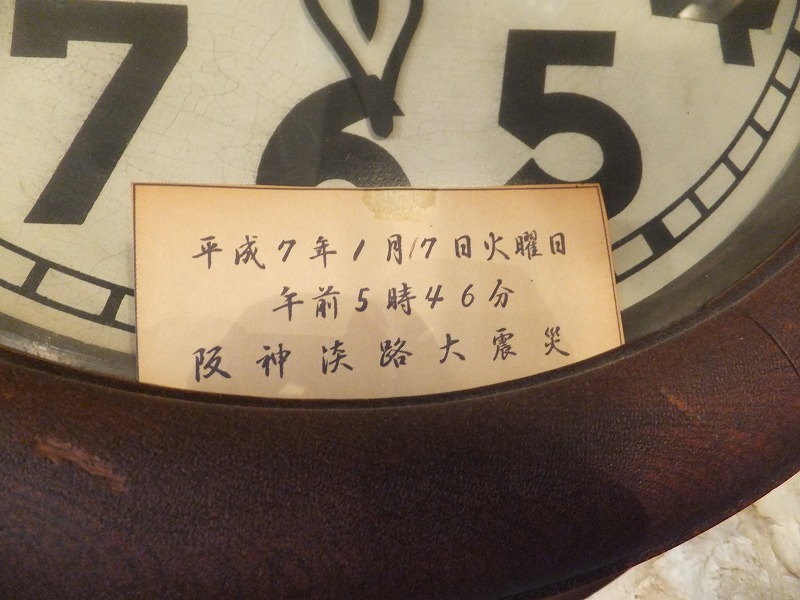 7 6 5 4
平成7年1月17日火曜日
午前5時46分
阪神淡路大震災